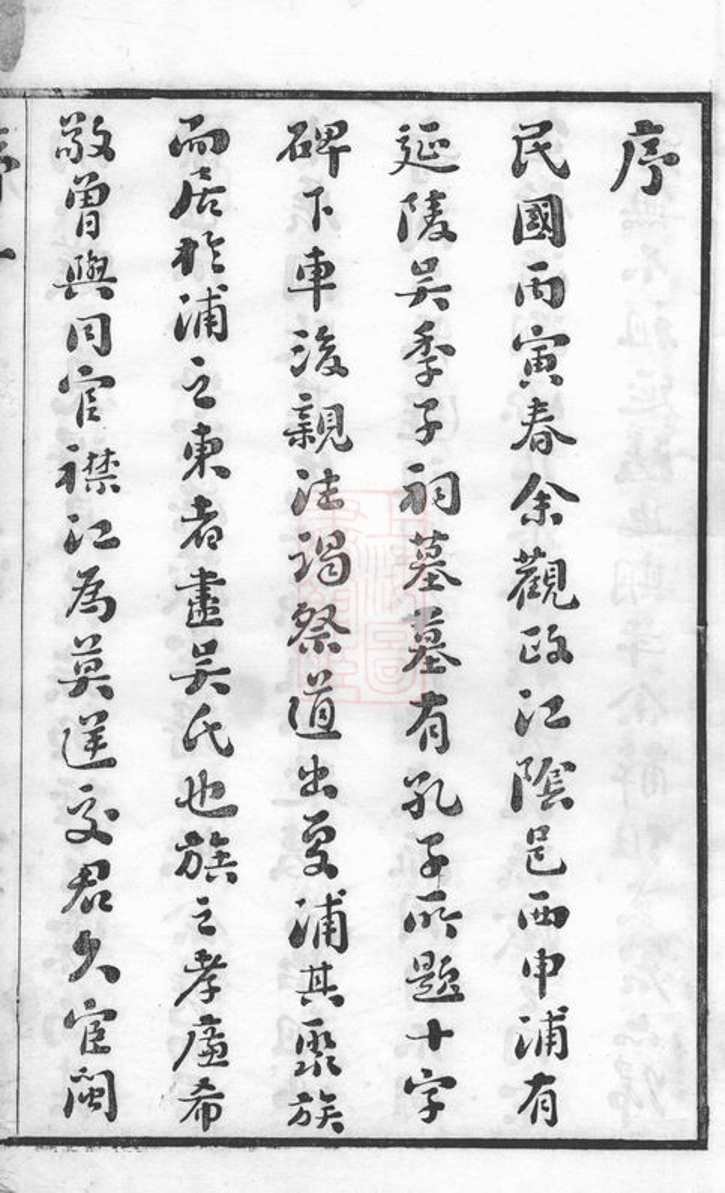 序
民國丙寅春余觀政江陰邑西申浦有
延陵吴季子祠墓墓有孔子所題十字
碑下車後親往謁祭道出夏浦其聚族
而居於浦之東者盡吴氏也族之孝廉希
敬曾與同官襟江為莫逆交君久宦閩